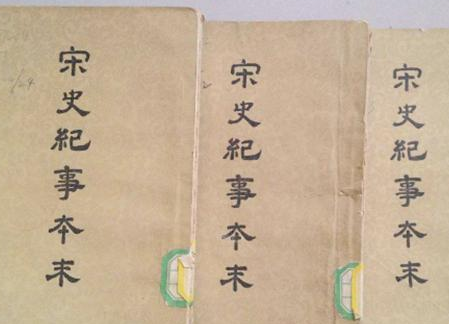 宋史紀事本末
宋史紀事本末
宋史紀事本末